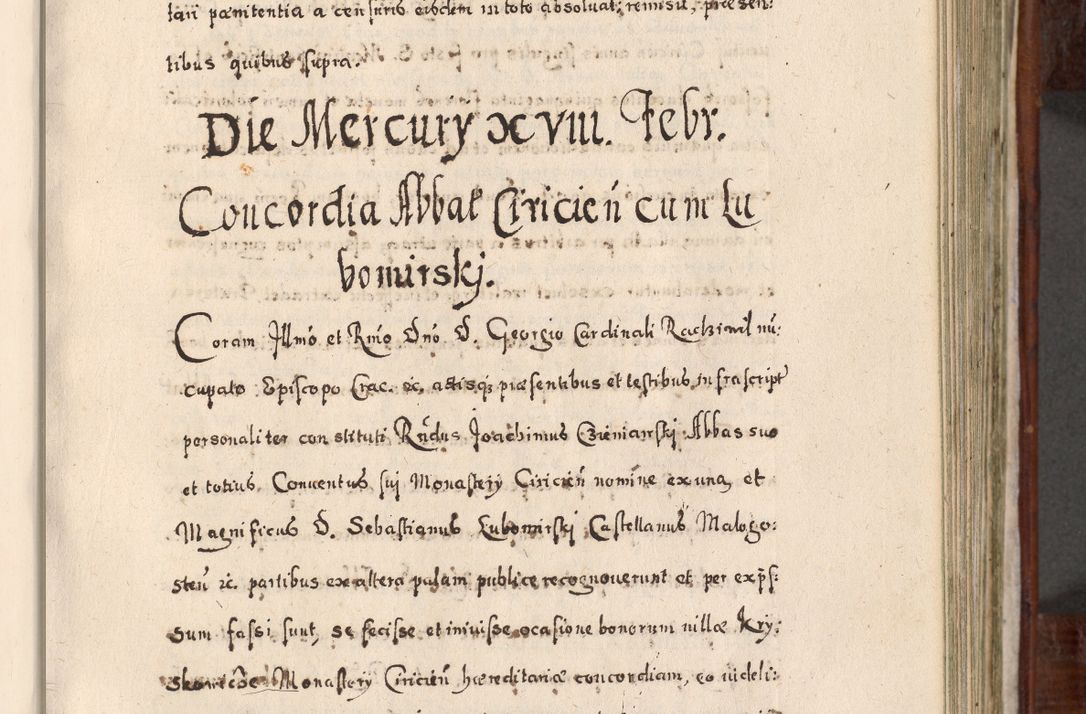 tari pænitentia a censuris eisdem in toto absoluat, remisit, præsen:
tibus quibus supra.
Die Mercurÿ xviii. Febr.
Concordia Abbat Ciricień cum Lu
bomirskj.
Coram Illmó et Rmo Dnó D. Georgio Cardinali Radziwil nú:
cupato Episcopo Crac. ec. actisq; præsentibus et testibus infrascript
personaliter constituti Rńdus Joachimus Abbas suo
et totius Conuentus suj Monasterÿ Ciricień nomine ex una, et
Magnificus D. Sebastianus Lubomirskj Castellanus Malogo:
steń ec. partibus ex altera palam publice recognouerunt et per exps:
sum fassi sunt, se fecisse et iniuisse ocasione bonorum uillæ Krÿ:
Monasterÿ Ciricień hæreditariæ concordiam, eo uideli: